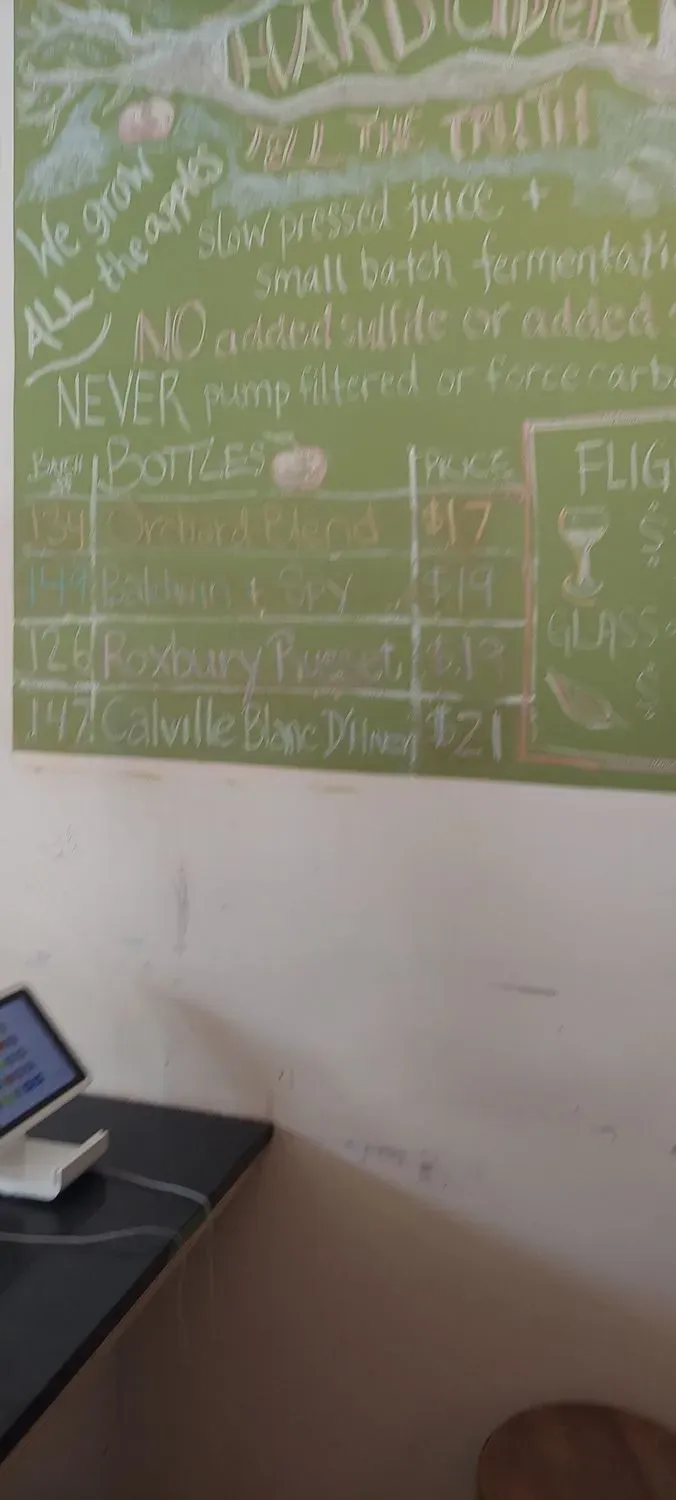 HARD CIDER
TELL THE TRUTH
We grow
ALL the apples
slow pressed juice +
small batch fermentati
NO added sulfite or added
NEVER pump filtered or force carb
BATCH # BOTTLES PRICE
134 Orchard Blend $17
149 Baldwin + Spy $19
126 Roxbury Russet $19
147 Calville Blanc D'Hiver $21
FLIG
$
GLASS
$